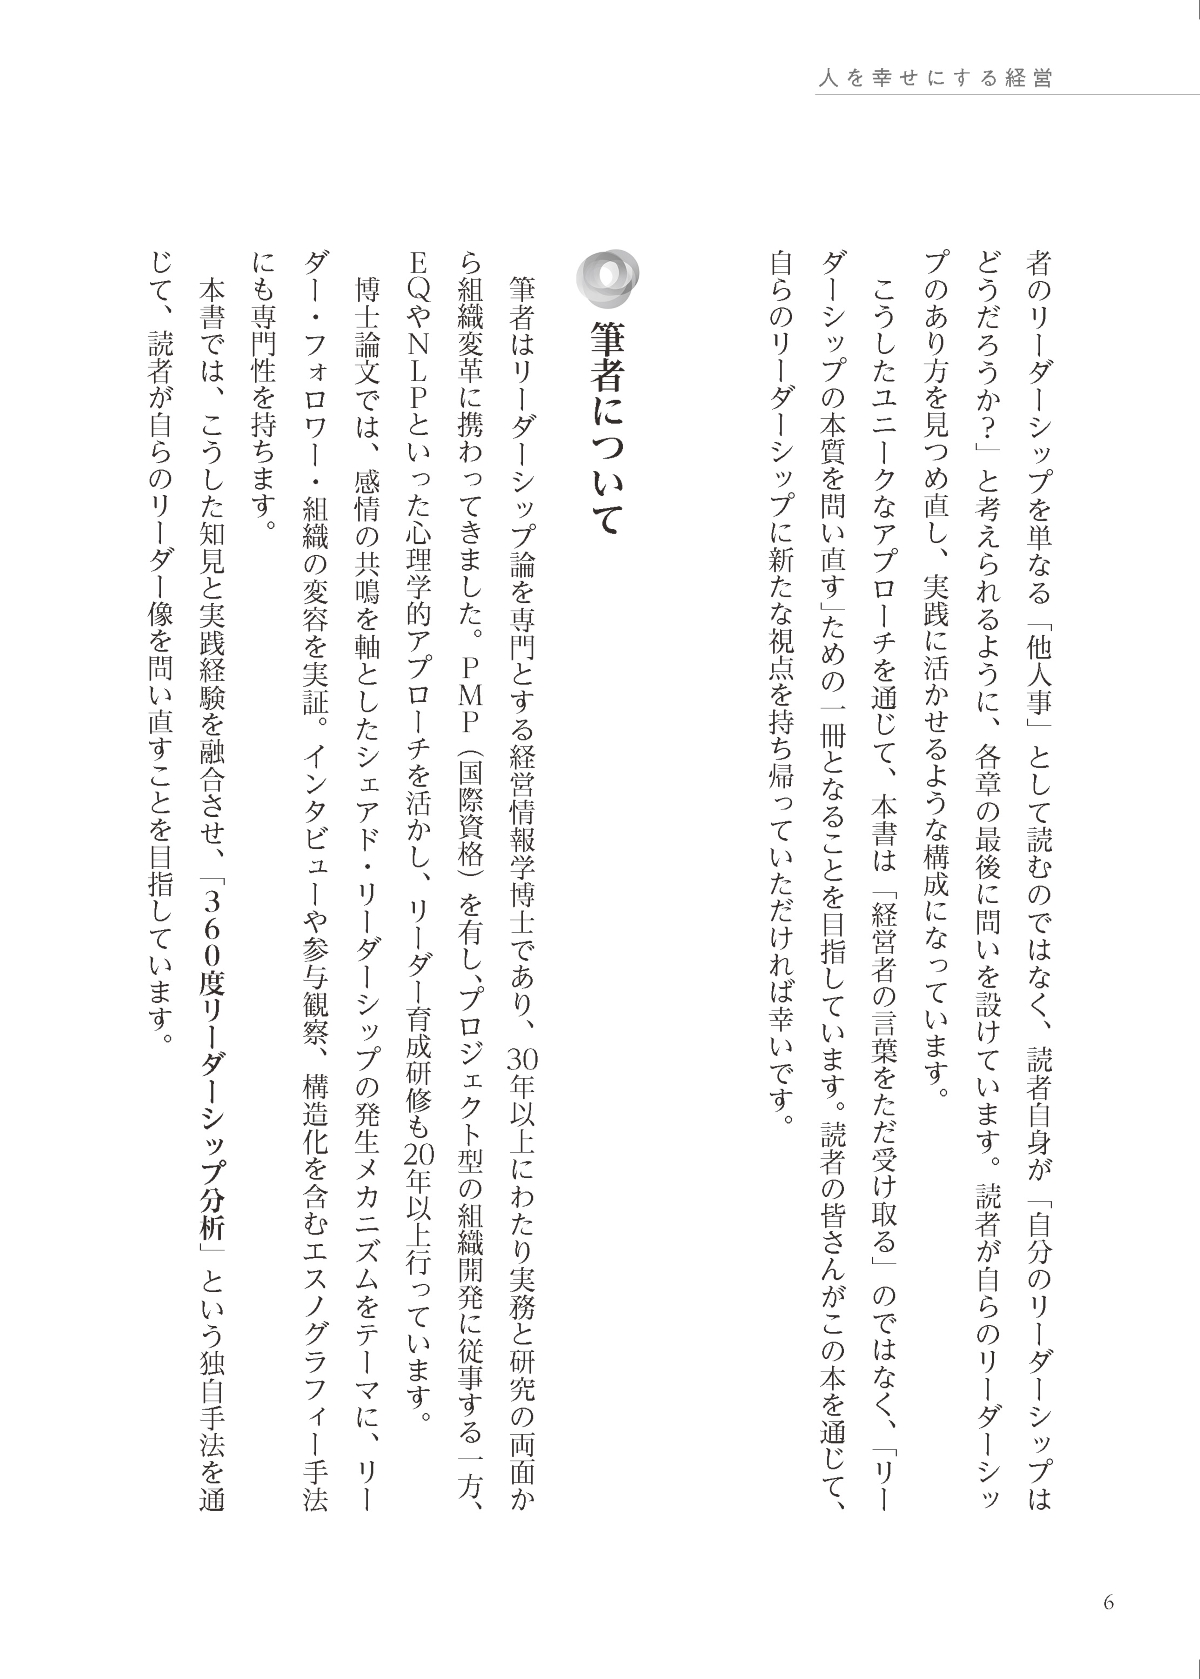 人を幸せにする経営
者のリーダーシップを単なる「他人事」として読むのではなく、読者自身が「自分のリーダーシップは
どうだろうか？」と考えられるように、各章の最後に問いを設けています。読者が自らのリーダーシッ
プのあり方を見つめ直し、実践に活かせるような構成になっています。
こうしたユニークなアプローチを通じて、本書は「経営者の言葉をただ受け取る」のではなく、「リー
ダーシップの本質を問い直す」ための一冊となることを目指しています。読者の皆さんがこの本を通じて、
自らのリーダーシップに新たな視点を持ち帰っていただければ幸いです。
筆者について
筆者はリーダーシップ論を専門とする経営情報学博士であり、30年以上にわたり実務と研究の両面か
ら組織変革に携わってきました。ＰＭＰ（国際資格）を有し、プロジェクト型の組織開発に従事する一方、
ＥＱやＮＬＰといった心理学的アプローチを活かし、リーダー育成研修も20年以上行っています。
博士論文では、感情の共鳴を軸としたシェアド・リーダーシップの発生メカニズムをテーマに、リー
ダー・フォロワー・組織の変容を実証。インタビューや参与観察、構造化を含むエスノグラフィー手法
にも専門性を持ちます。
本書では、こうした知見と実践経験を融合させ、「３６０度リーダーシップ分析」という独自手法を通
じて、読者が自らのリーダー像を問い直すことを目指しています。
6